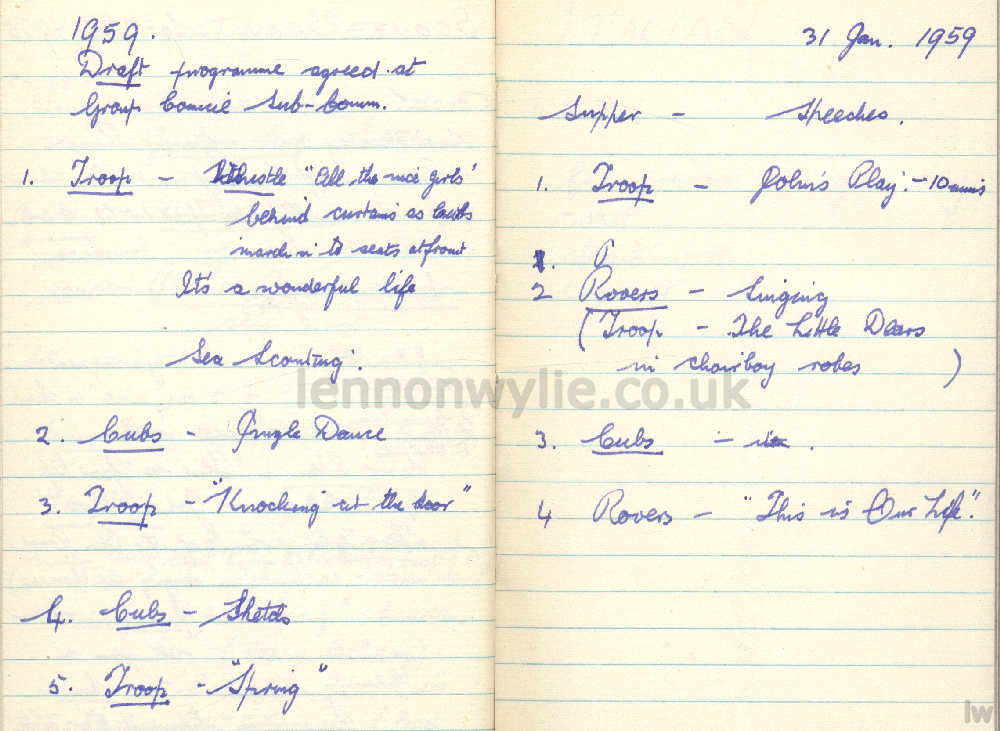 1959.
Draft programme agreed at
Group Comm Sub-Comm.
1. Troop - Whistle "All the nice girls'
behind curtains as Cubs
march in to seats at front
It's a wonderful life
Sea Scouting.
2. Cubs - Jungle Dance
3. Troop - "Knocking at the door"
4. Cubs - Sketch
5. Troop - "Spring"
31 Jan. 1959
Supper - Speeches.
1. Troop - John's Play. - 10 mins
2 Rovers - Singing
(Troop - The Little Dears
in choirboy robes )
3. Cubs -
4 Rovers - "This is Our Life".
lennonwylie.co.uk
lw